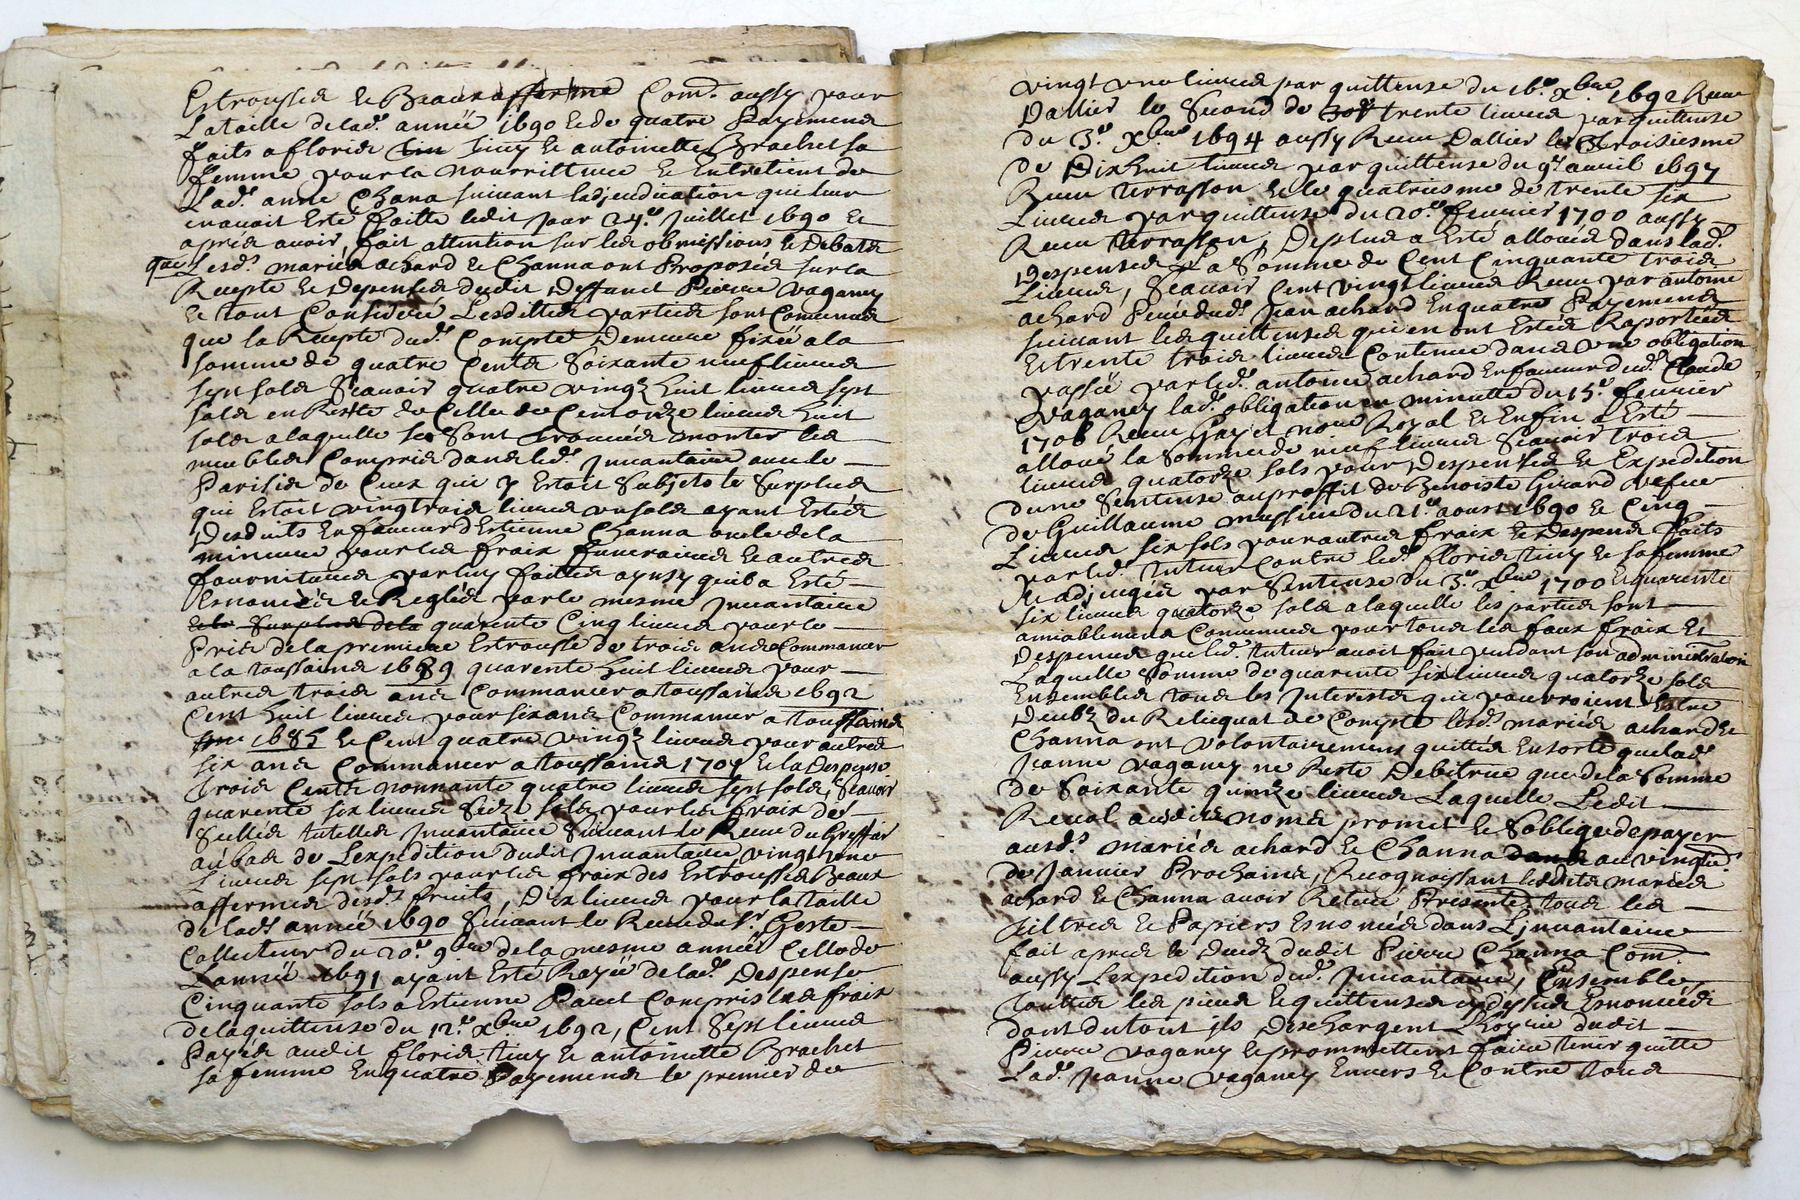 Estrousses & Beaux afferme Com.e aussy pour
La taille de lad.e année 1690 & de quatre Payemens
faits a floris tiny & antoinette Brachet sa
femme pour la nourritture & Entretient de
Lad.e anne Chana suivant ladjudication qui leur
en avoit Esté faitte ledit jour 24.e Juillet 1690 &
aprés avoir fait attention sur les obmissions & Debats
que Lesd.s mariés achard & Channa ont Proposés sur la
Recepte & Depenses dudit Deffunct Pierre Vaganey
Le tout Consideré Lesdittes parties sont Convenues
que la Recepte dud.t Compte Demeure fixéé a la
somme de quatre Cents Soixante neuf livres
sept sols Scavoir quatre vingt huit livres sept
sols en Reste de Celle de Cent onze livres huit
sols a laquelle se sont trouvés monter les
meubles Compris dans led.t Inventaire avec le
Parisis de Ceux qui y Estoit Subjets le Surplus
qui Estoit vingt trois livres un sols ayant Estés
Desduits En faveur d'Estienne Channa oncle de la
mineure pour les fraix funeraires & autres
fournitures par luy faittes aynsy quil a Esté
Enoncés & Reglés par le mesme Inventaire
& le Surplus de la quarente Cinq livres pour le
Prix de la premiere Estrousse de trois ans Commancer
a la toussaint 1689 quarente huit livres pour
autres trois ans Commancer a toussaint 1692
Cent huit livres pour six ans Commancer a toussaints
1685 & Cent quatre vingt livres pour autres
six ans Commancer a toussaint 1701 & la Despense
Trois Cents nonnante quatre livres sept sols, Scavoir
quarente six livres seize sols pour les fraix des
Scellés tutelles Inventaire Suivant le Receu du Greffier
au bas de Lexpedition dudit Inventaire vingt une
Livres sept sols pour les fraix des Estrousses Beaux
affermes desd.s fruits, Dix livres pour la taille
de lad.e année 1690 Suivant le Receu du s.r Geste
Collecteur du 20.e 9bre de la mesme année Celle de
Lannéé 1691 ayant Esté Rayéé de lad.e Despense
Cinquante sols a Estienne Compris les fraix
de la quittense du 12.e Xbre 1692, Cent Sept livres
Payés audit floris tiny & antoinette Brachet
sa femme En quatre Payemens le premier de
vingt une livres par quittense du 16.e Xbre 1692 Receu
Dallier le Second de trente livres par quittense
du 3.e Xbre 1694 aussy Receu Dallier le Troisiesme
de Dix huit livres par quittense du 9.e avril 1697
Receu terrasson & le quatriesme de trente six
Livres par quittense du 20.e fevrier 1700 aussy
Receu terrasson, Desplus a Esté alloués dans lad.e
Despenses La Somme de Cent Cinquante trois
Livres, Scavoir Cent vingt livres Receu par antoine
achard Pere dud.t Jean achard En quatre Payemens
suivant les quittenses qui en ont Estés Raportéés
Et trente trois livres Contenue dans une obligation
passéé par led.t antoine achard En faveur dud.t Claude
Vaganey lad.e obligation en minutte du 15.e fevrier
1706 Receu Gayet no.re Royal & Enfin a Esté
alloué la Somme de neuf livres Scavoir trois
livres quatorze sols pour Despenses & Expedition
dune Sentense au proffit de Benoiste Girard vefve
de Guillaume Mussieu du 21.e aoust 1690 & Cinq
Livres six sols pour autres fraix & Despens faits
par led.t tuteur Contre led.t floris tiny & sa femme
& adjugés par Sentense du 3.e Xbre 1700 & quarente
six livres quatorze sols a laquelle les parties sont
amiablement Convenues pour tous les faux fraix Et
Despenses que led.t tuteur avoit fait pendant son administration
Laquelle Somme de quarente six livres quatorze sols
Ensembles tous les Interests qui pourroient Estre
Deubz du Relicquat de Compte lesd.s mariés achard &
Channa ont volontairement quittés En sorte que lad.e
Jeanne Vaganey ne Reste Debitrice que de la Somme
de Soixante quinze livres Laquelle Ledit
Reval audits noms promet & soblige de payer
ausd.s mariés achard & Channa dans au vingt
de Janvier Prochains, Recognoissant lesdits mariés
achard & Channa avoir Retiré Presente tous les
Tiltres & Papiers Enoncés dans Linventaire
fait aprés le Decez dudit Pierre Channa Com.e
aussy Lexpedition dud.t Inventaire, Ensemble
Touttes les pieces & quittenses cy dessus Enoncéés
dont du tout ils deschargent Lhoyrie dudit
Pierre Vaganey & promettent faire tenir quitte
Lad.e Jeanne Vaganey Envers & Contre tous